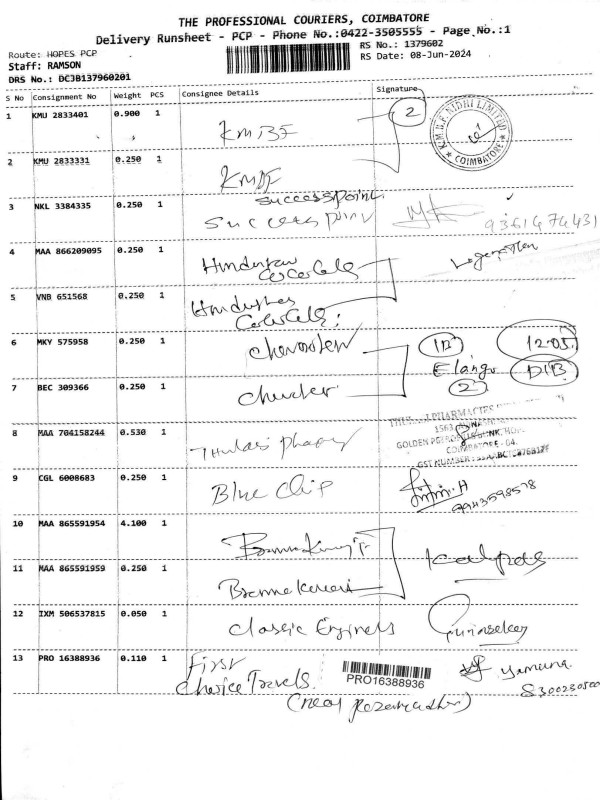 THE PROFESSIONAL COURIERS, COIMBATORE
Delivery Runsheet - PCP - Phone No.:0422-3505555 - Page No.:1
Route: HOPES PCP
RS No.: 1379602
Staff: RAMSON
RS Date: 08-Jun-2024
DRS No.: DCJB137960201
S No Consignment No Weight PCS Consignee Details Signature
1 KMU 2833401 0.900 1 KMBF 2
K.M.B.F. NIDHI LIMITED
COIMBATORE
2 KMU 2833331 0.250 1 KMBF
success point.
3 NKL 3384335 0.250 1 Success point 9361474431
4 MAA 866209095 0.250 1 Hindustan
CocoCola
5 VNB 651568 0.250 1
6 MKY 575958 0.250 1 12.05
Elango
7 BEC 309366 0.250 1 2
8 MAA 704158244 0.530 1 Thulasi
PHARMACIES
COIMBATORE - 04.
GST NUMBER
9 CGL 6008683 0.250 1 Blue Chip
9943598578
10 MAA 865591954 4.100 1
11 MAA 865591959 0.250 1
12 IXM 506537815 0.050 1 Classic Engineers Gunasekar
13 PRO 16388936 0.110 1 First
Choice Travels.
PRO16388936
yamuna
8300230500
(near